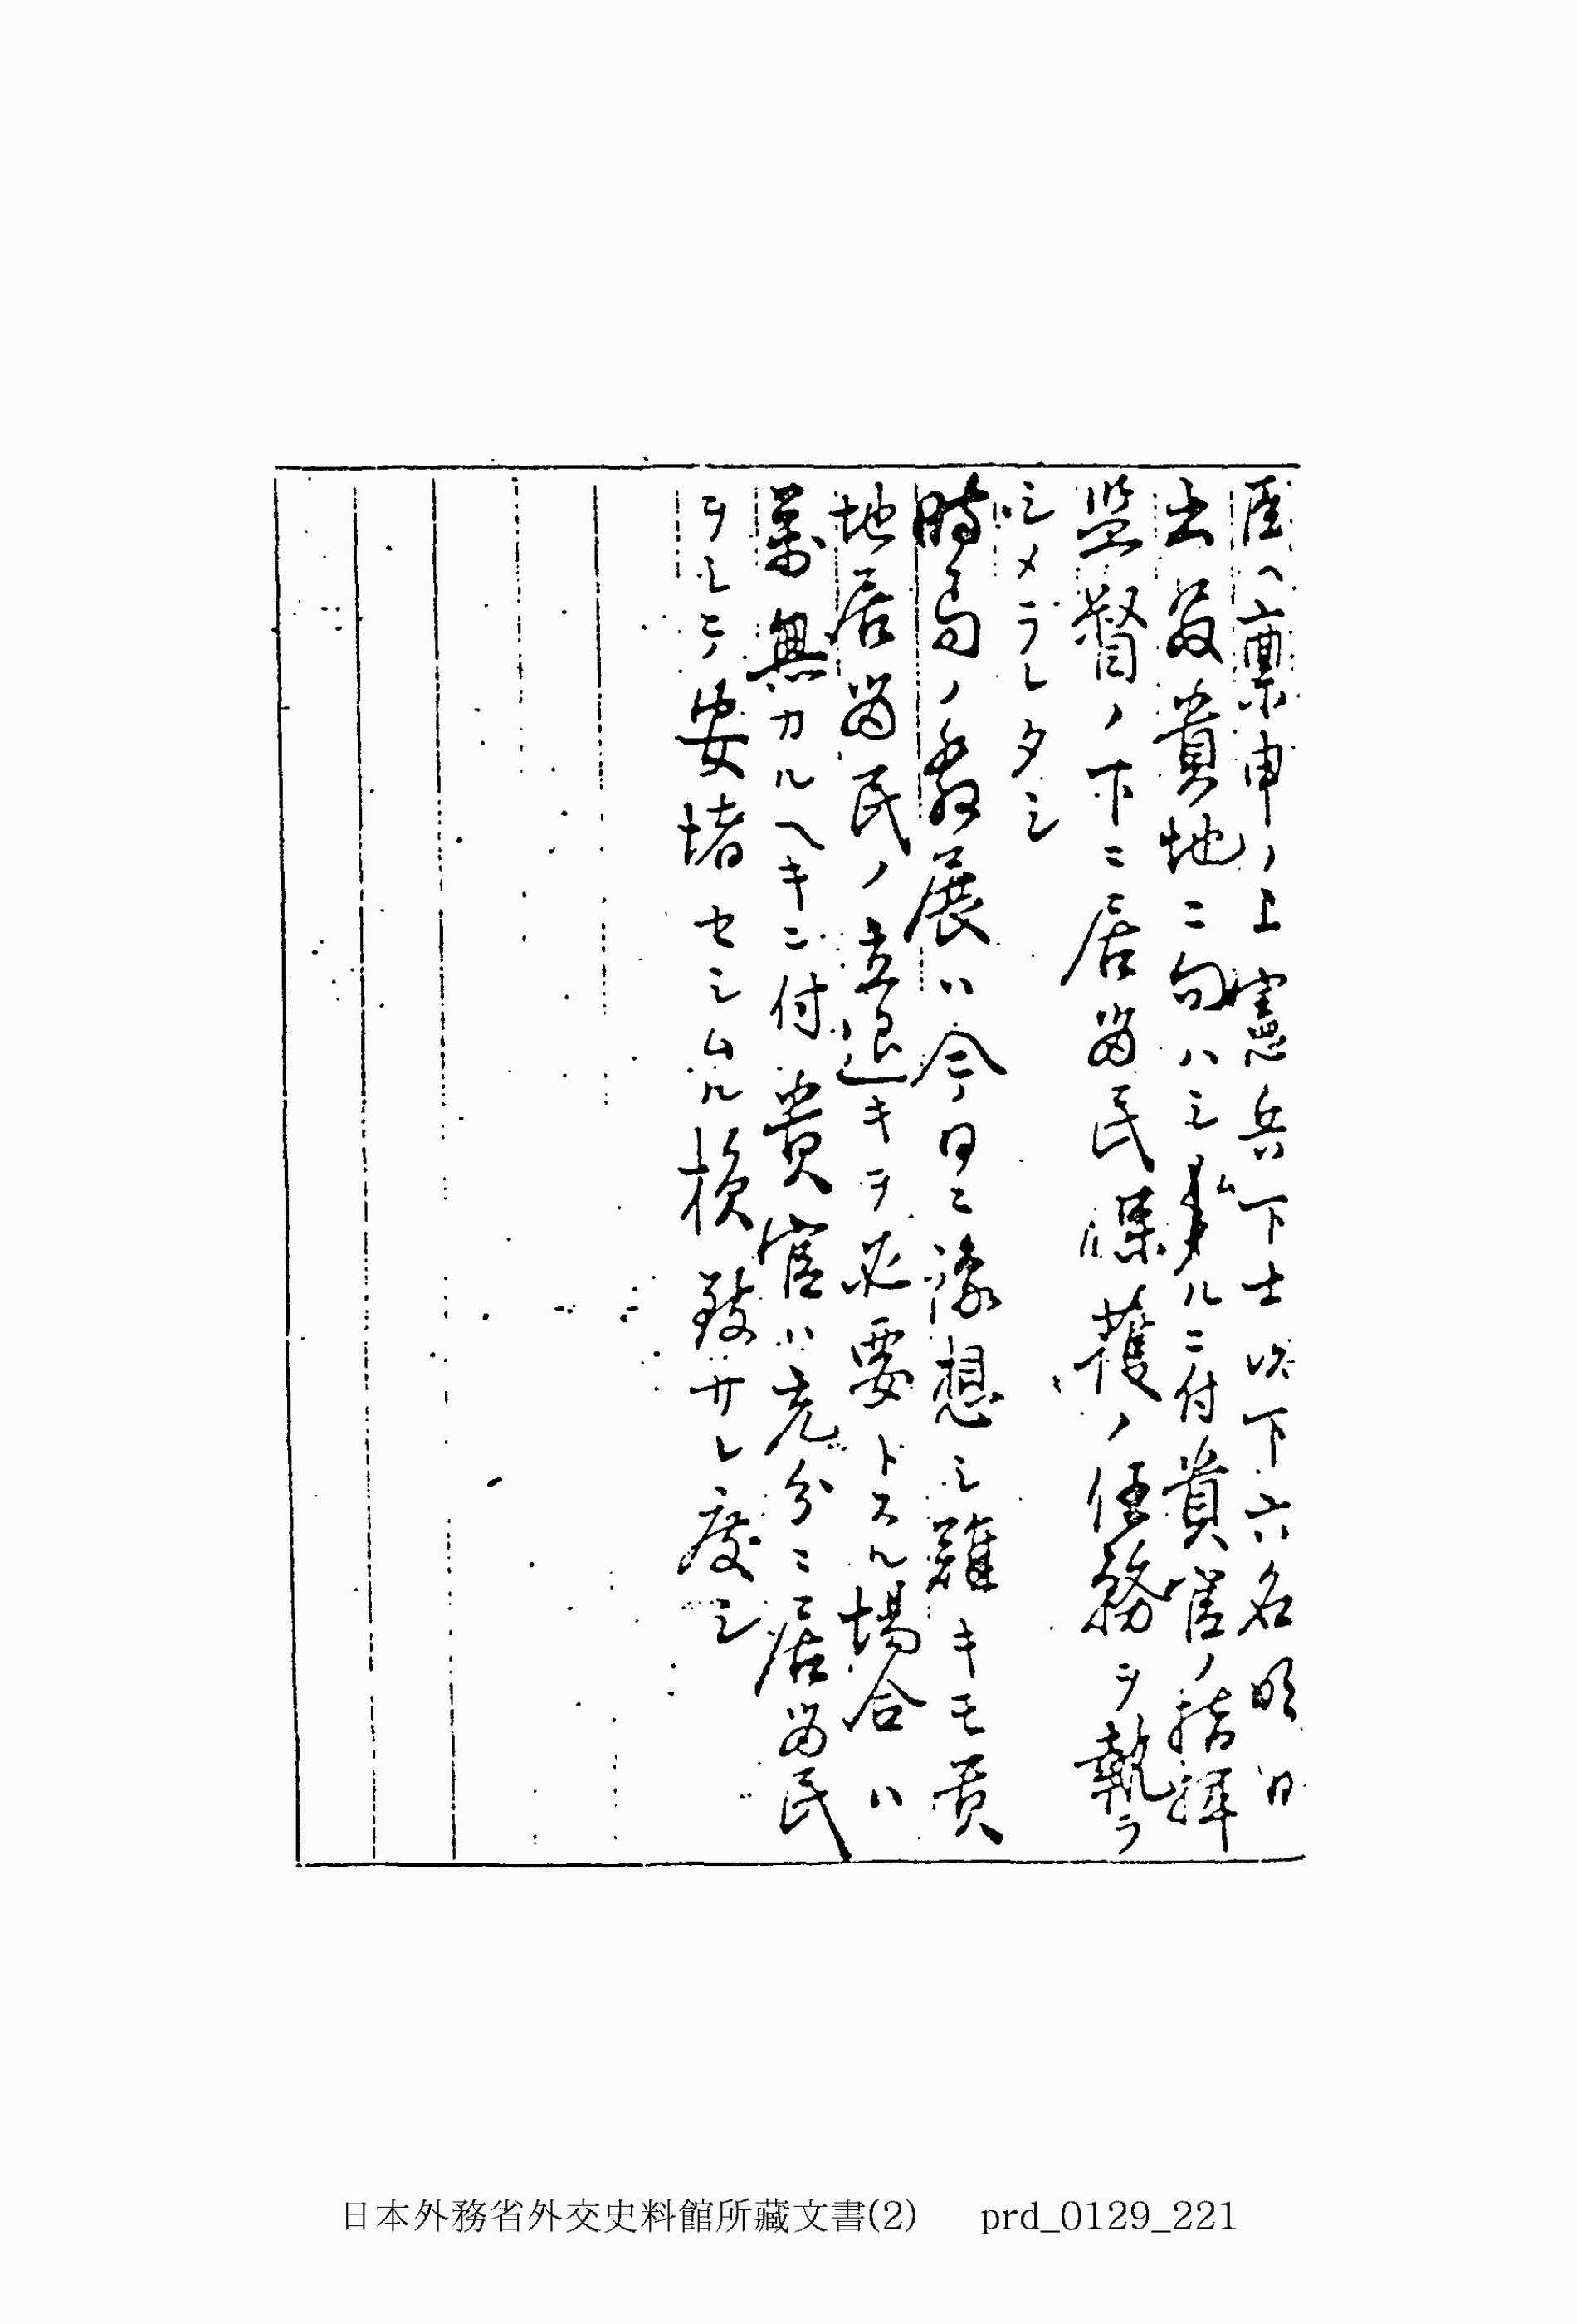 臣ヘ稟申ノ上憲兵下士以下六名明日
出發貴地ニ向ハシムルニ付貴官ノ指揮
監督ノ下ニ居留民保護ノ任務ヲ執ラ
シメラレタシ
時局ノ發展ハ今日ニ豫想シ難キモ貴
地居留民ノ立退キヲ必要トスル場合ハ
萬無カルヘキニ付貴官ハ充分ニ居留民
ヲシテ安堵セシムル様致サレ度シ
日本外務省外交史料館所藏文書(2) prd_0129_221